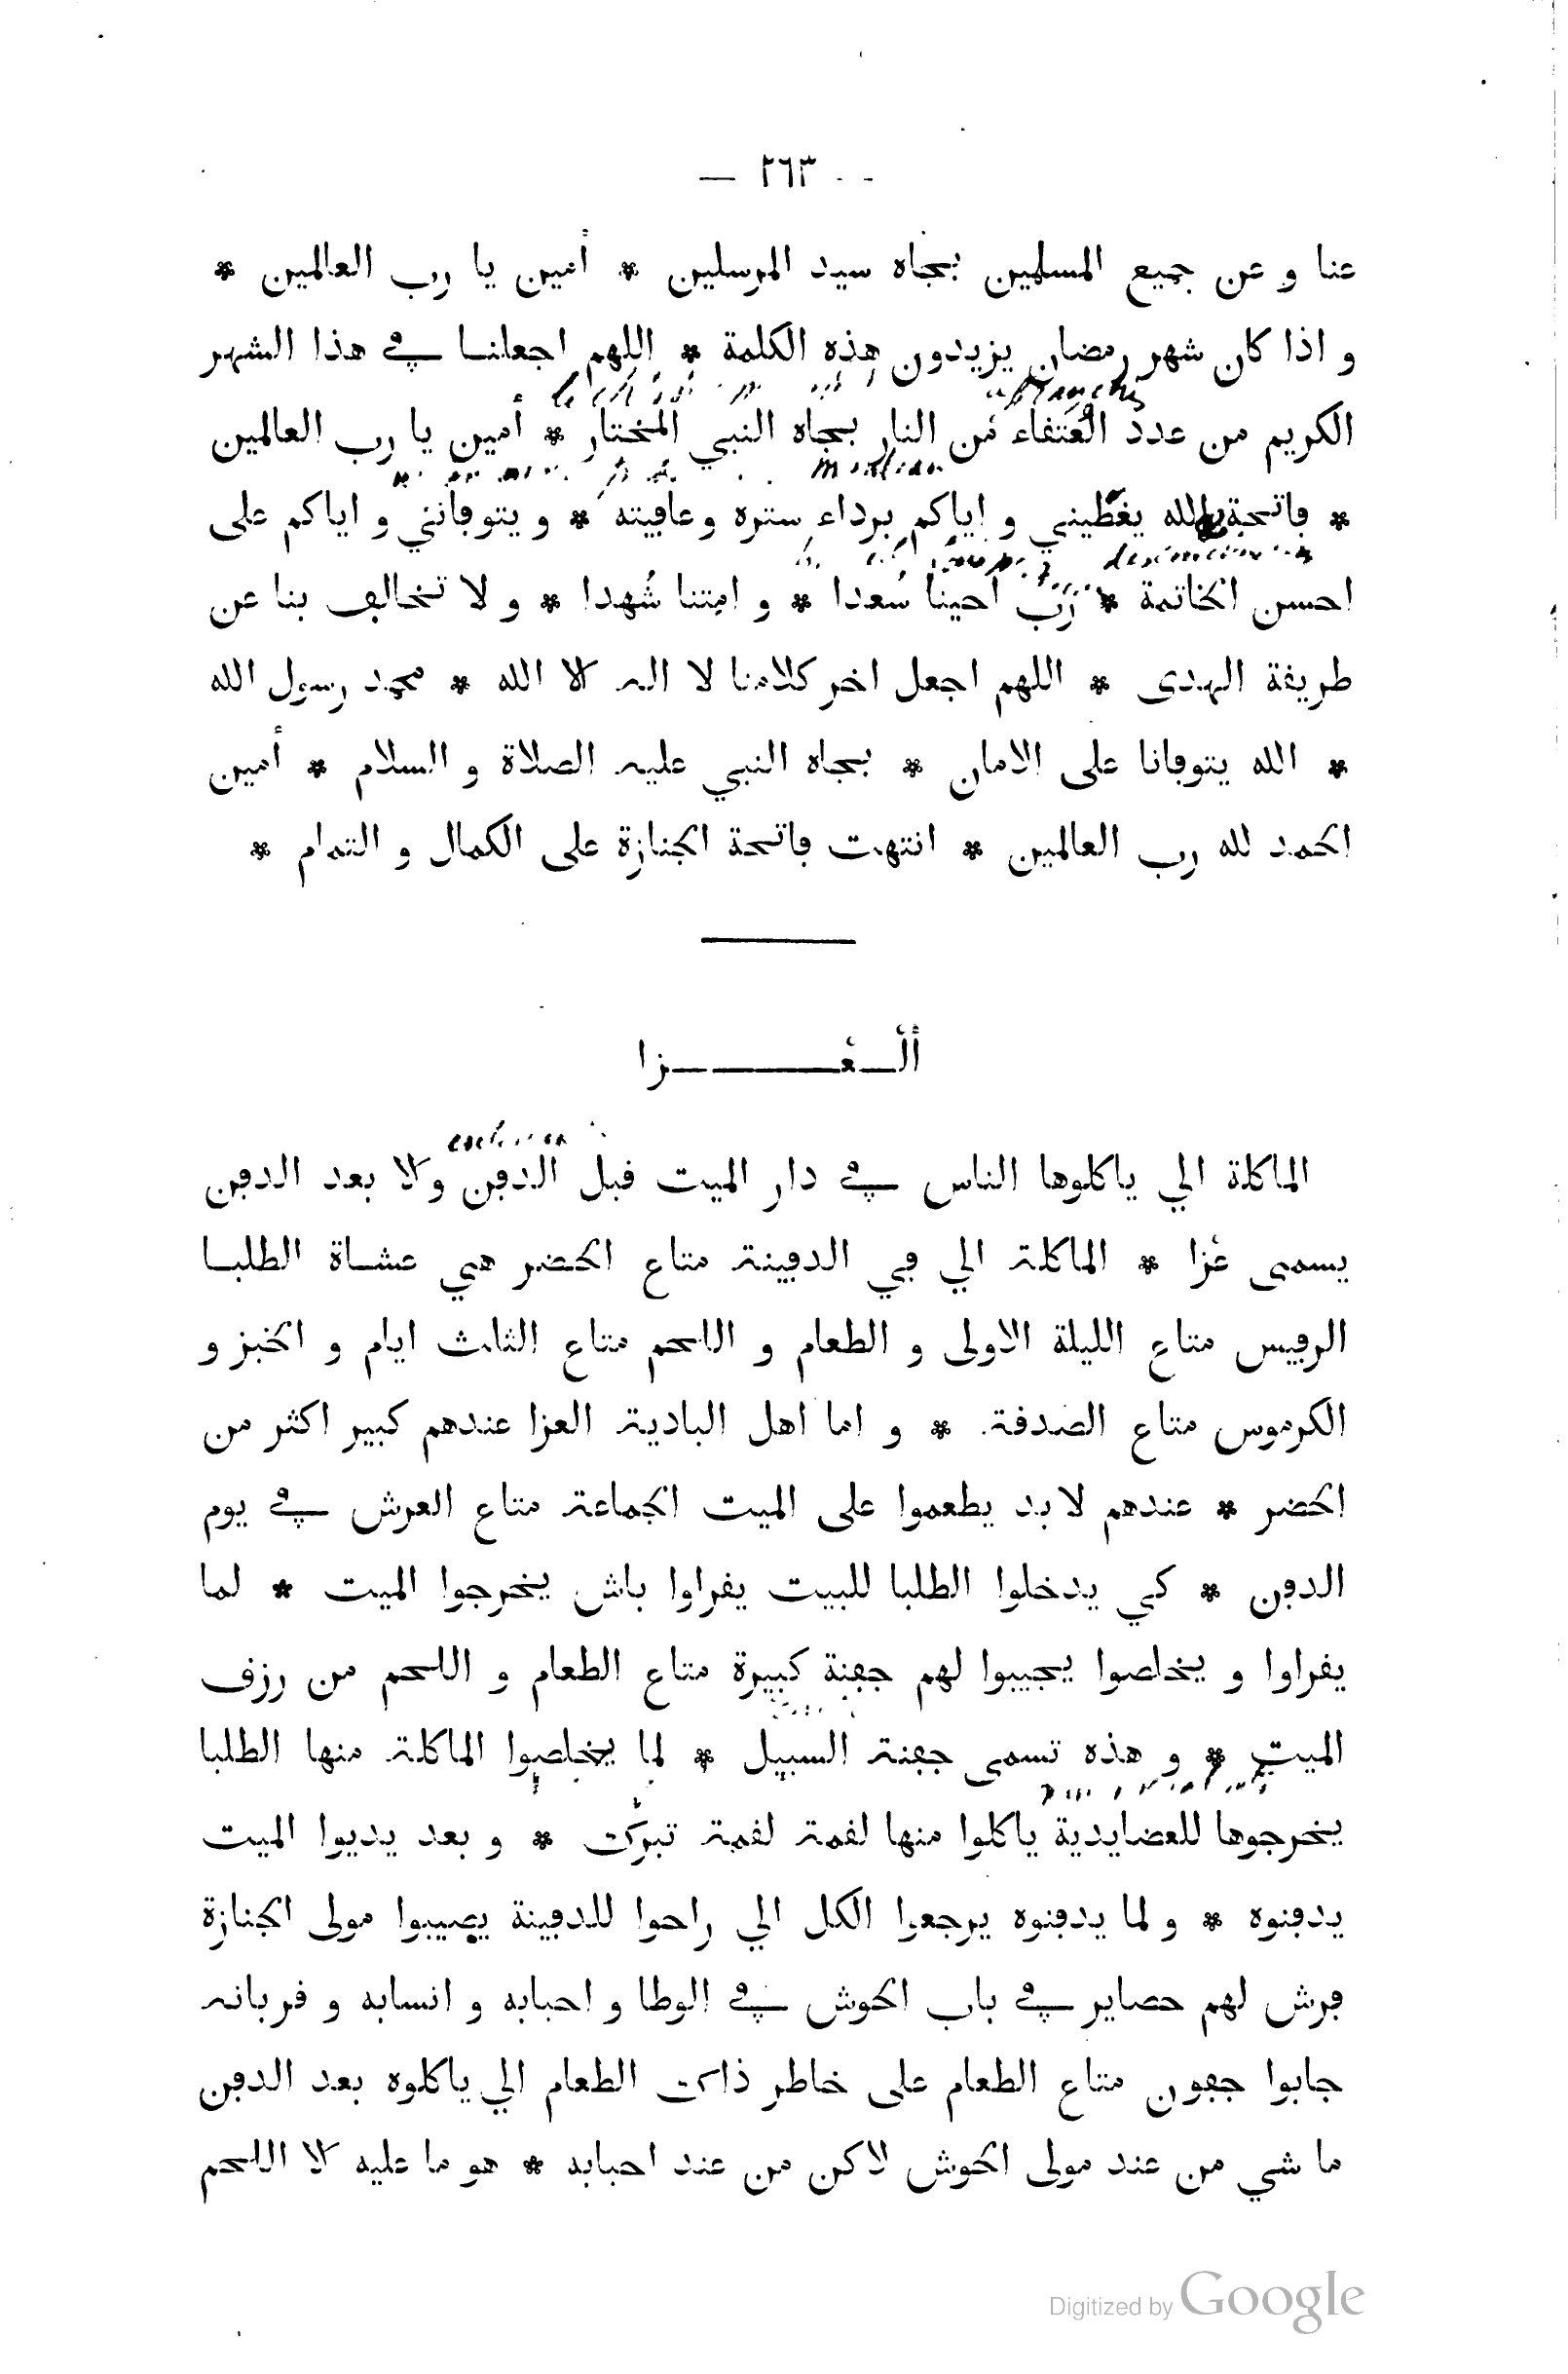 — ٢٦٣ —
عنا و عن جميع المسلمين بجاه سيد المرسلين * أمين يا رب العالمين *
و اذا كان شهر رمضان يزيدون هذه الكلمة * اللهم اجعلنا في هذا الشهر
affranchis
الكريم من عدد العُتَقاء من النار بجاه النبي المختار * أمين يا رب العالمين
manteau
* فاتحة الله يغطيني و اياكم برداء ستره وعافيته * و يتوفانني و اياكم على
احسن الخاتمة * رَبّ احينا سُعدا * و امتنا شُهدا * و لا تخالف بنا عن
طريقة الهدى * اللهم اجعل اخر كلامنا لا اله الا الله * محمد رسول الله
* الله يتوفانا على الامان * بجاه النبي عليه الصلاة و السلام * أمين
الحمد لله رب العالمين * انتهت فاتحة الجنازة على الكمال و التمام *
ألْعُزا
الماكلة الي ياكلوها الناس في دار الميت قبل الدفن ولا بعد الدفن
يسمى عُزا * الماكلة الي في الدفينة متاع الحضر هي عشاة الطلبا
الرفيس متاع الليلة الاولى و الطعام و اللحم متاع الثالث ايام و الخبز و
الكرموس متاع الصدقة * و اما اهل البادية العزا عندهم كبير اكثر من
الحضر * عندهم لا بد يطعموا على الميت الجماعة متاع العرش في يوم
الدفن * كي يدخلوا الطلبا للبيت يقراوا باش يخرجوا الميت * لما
يقراوا و يخلصوا يجيبوا لهم جفنة كبيرة متاع الطعام و اللحم من رزق
الميت * و هذه تسمى جفنة السبيل * لما يخلصوا الماكلة منها الطلبا
يخرجوها للعضايدية ياكلوا منها لقمة لقمة تبرّك * و بعد يديوا الميت
يدفنوه * و لما يدفنوه يرجعوا الكل الي راحوا للدفينة يصيبوا مولى الجنازة
فرش لهم حصاير في باب الحوش في الوطا و احبابه و انسابه و قربانه
جابوا جفون متاع الطعام على خاطر ذاك الطعام الي ياكلوه بعد الدفن
ما شي من عند مولى الحوش لاكن من عند احبابه * هو ما عليه الا اللحم
Digitized by Google